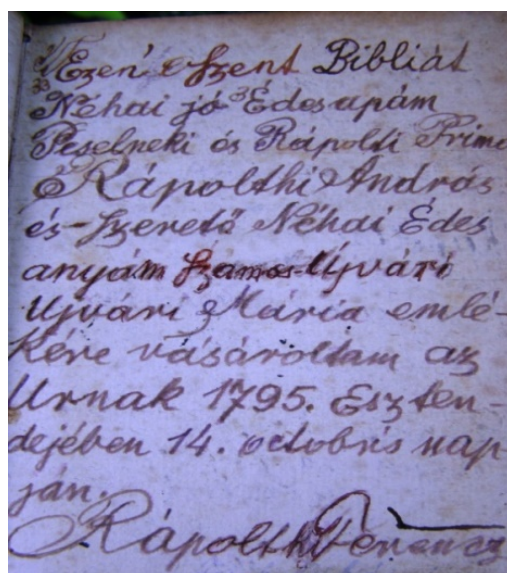 Ezen Szent Bibliát
Néhai jó Édesapám
Peselneki és Rápolti Primo
Rápolthi András
és Szerető Néhai Édes
anyám Szamos-Ujvári
Ujvári Mária emlé-
kére vásároltam az
Urnak 1795. Eszten-
dejében 14. octobris nap-
ján.
Rápolthi Ferencz